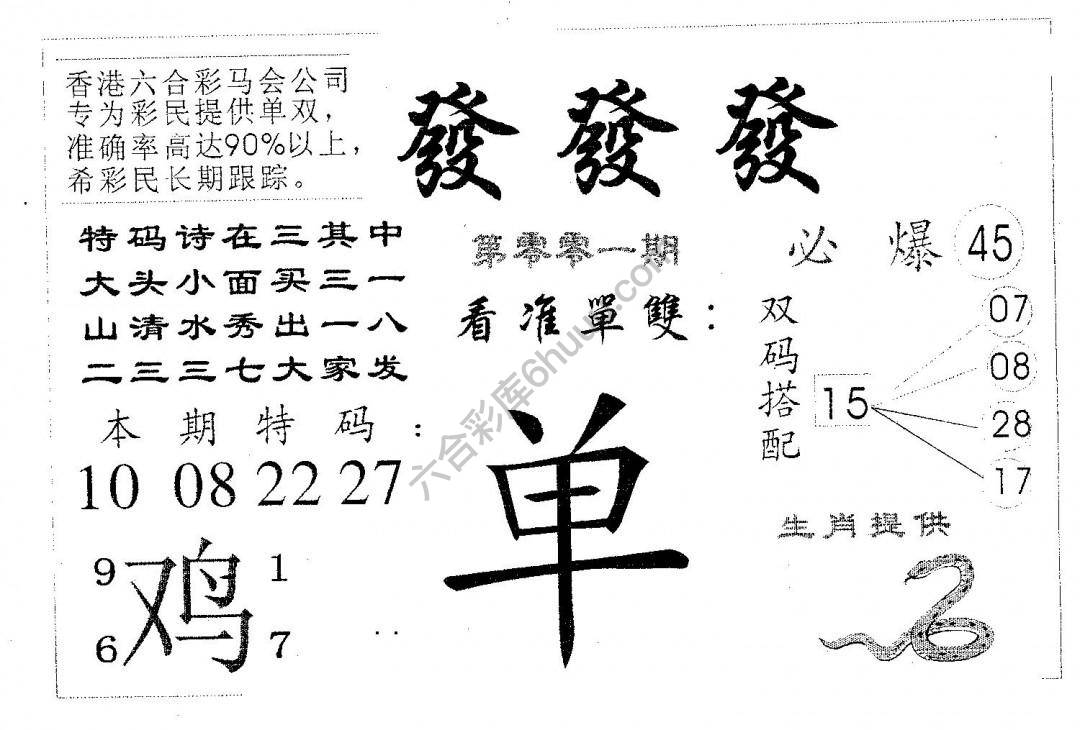 香港六合彩马会公司
专为彩民提供单双，
准确率高达90%以上，
希彩民长期跟踪。
發 發 發
特码诗在三其中
大头小面买三一
山清水秀出一八
二三三七大家发
第零零一期
看准單雙：
单
必爆 45
双码搭配
15
07
08
28
17
本期特码：
10 08 22 27
9 1
鸡
6 7
生肖提供
六合彩库6huu.com